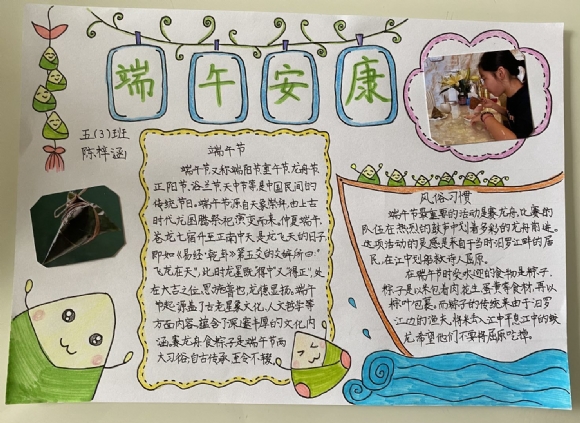 端午安康
五(3)班
陈梓涵
端午节
端午节又称端阳节重午节龙舟节
正阳节、浴兰节天中节等是中国民间的
传统节日。端午节源自天象崇拜,由上古
时代龙图腾祭祀演变而来。仲夏端午,
苍龙七宿升至正南中天是龙飞天的日子,
即如《易经·乾卦》第五爻的爻辞所曰:“
飞龙在天”,此时龙星既“得中”又“得正”,处
在大吉之位。
节起源涵盖了古老星象文化,人文哲学等
方面内容,蕴含了深邃丰厚的文化内
涵。赛龙舟食粽子是端午节两
大习俗,自古传承至今不辍。
风俗习惯
端午节最重要的活动是赛龙舟,比赛的
队伍在热烈的鼓声中划着多彩的龙舟前进。
这项活动的灵感是来自于当时汨罗江畔的居
民,在江中划船救诗人屈原。
在端午节时受欢迎的食物是粽子,
粽子是以米包着肉、花生、蛋黄等食材,再以
粽叶包裹。而粽子的传统来由于汨罗
江边的渔夫,将米丢入江中平息江中的蛟
龙,希望他们不要将屈原吃掉。